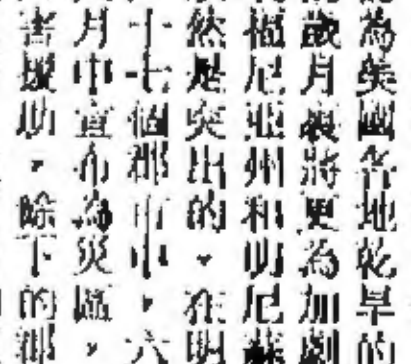 為美國各地乾旱的
歲月裏將更為加劇
福尼亞州和明尼蘇
然是突出的，在明
十七個郡市中，六
月中宣布為災區，
害援助，除下的郡